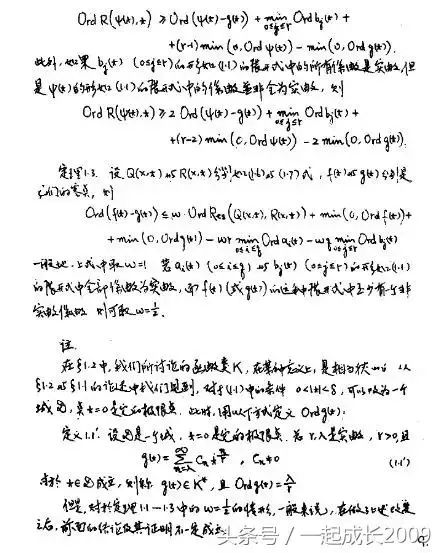 Ord R(ψ(t),t) ≥ Ord(ψ(t)-g(t)) + min_{0≤j≤r} Ord b_j(t) +
+(r-1)min(0, Ord ψ(t)) - min(0, Ord g(t)).
此外, 如果 b_j(t) (0≤j≤r)的形如(1.1)的展开式中的所有系数是实数, 但
是 ψ(t)的形如(1.1)的展开式中的系数并非全为实数, 则
Ord R(ψ(t),t) ≥ 2 Ord(ψ(t)-g(t)) + min_{0≤j≤r} Ord b_j(t) +
+(r-2)min(0, Ord ψ(t)) - 2 min(0, Ord g(t)).
定理1.3. 设 Q(x,t) 和 R(x,t) 分别如(1.6)和(1.7)式, f(t)和g(t)分别是
它们的零点, 则
Ord(f(t)-g(t)) ≤ w Ord Res(Q(x,t), R(x,t)) + min(0, Ord f(t)) +
+ min(0, Ord g(t)) - wr min_{0≤i≤q} Ord a_i(t) - wq min_{0≤j≤r} Ord b_j(t)
一般地, 上式中取 w=1. 若 a_i(t) (0≤i≤q) 和 b_j(t) (0≤j≤r)的形如(1.1)
的展开式中全部系数为实数, 而 f(t)(或g(t))的这种展开式中至少有一个非
实数系数, 则可取 w=1/2.
注.
在§1.2中, 我们所讨论的函数类K, 在某种意义上, 是相当狭
§1.2和§1.1的论述中我们见到, 对于(1.1)中的条件 0<|t|<δ, 可以改为一个
域 D, 点 t=0是它的极限点. 此时, 用以下方式定义 Ord g(t):
定义1.1'. 设D是一个域, t=0是它的极限点. 若 r,λ是实数, r>0, 且
g(t) = Σ_{n=λ}^{∞} C_n t^{n/r}, C_λ≠0 (1.1')
对于 t∈D 成立, 则称 g(t)∈K*, 且 Ord g(t)=λ/r
但是, 对于定理1.1-1.3中的 w=1/2的情形, 一般来说, 在做了上述改变
之后, 前面的结论及其证明不一定成立.
头条号 / 一起成长2009
9.